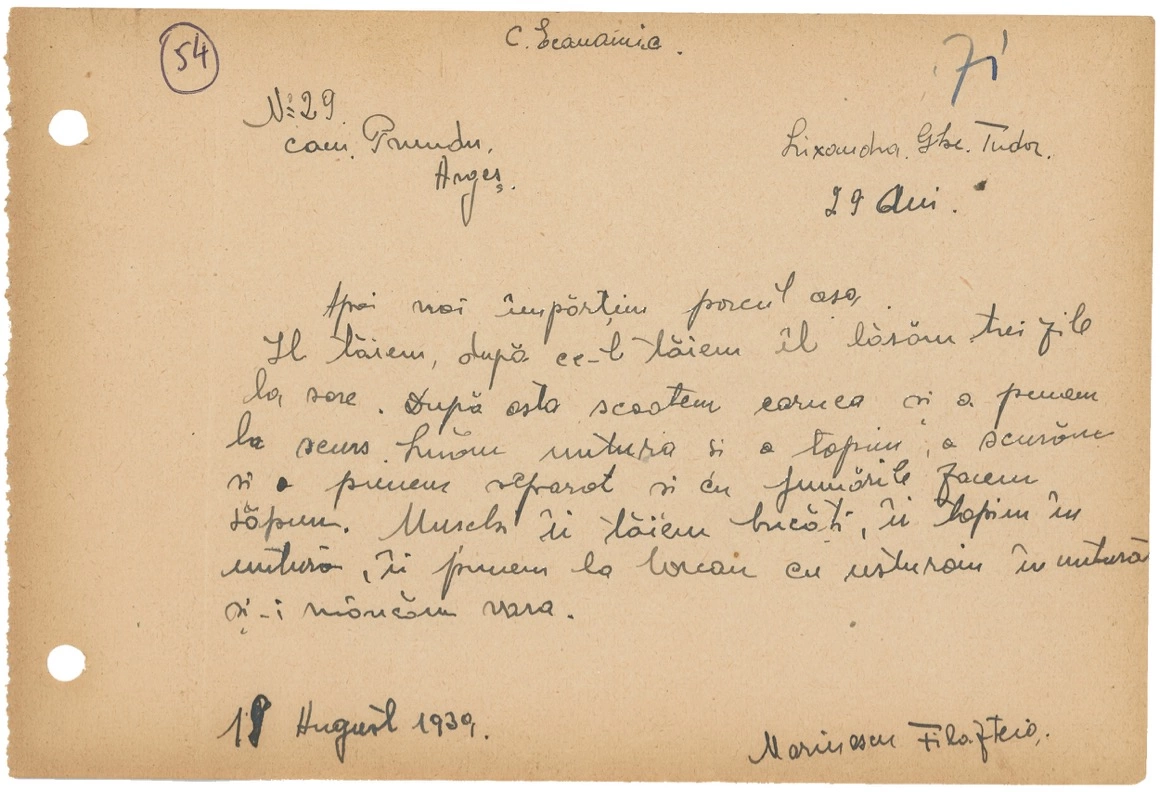 54
C. Economica.
7i
No 29.
com. Prundu,
Argeș.
Lixandra. Ghe. Tudor.
29 Ani.
Apoi noi împărțim porcul asa.
Il tăiem, după ce-l tăiem îl lăsăm trei zile
la sare. După asta scoatem carnea si o punem
la scurs. Luăm untura si o topim, o scurăm
si o punem separat si cu jumările facem
săpun. Muschi îi tăiem bucăti, îi topim în
untură, îi punem la borcan cu usturoiu în untură
și-i mâncăm vara.
18 August 1939.
Marinescu Filofteia.